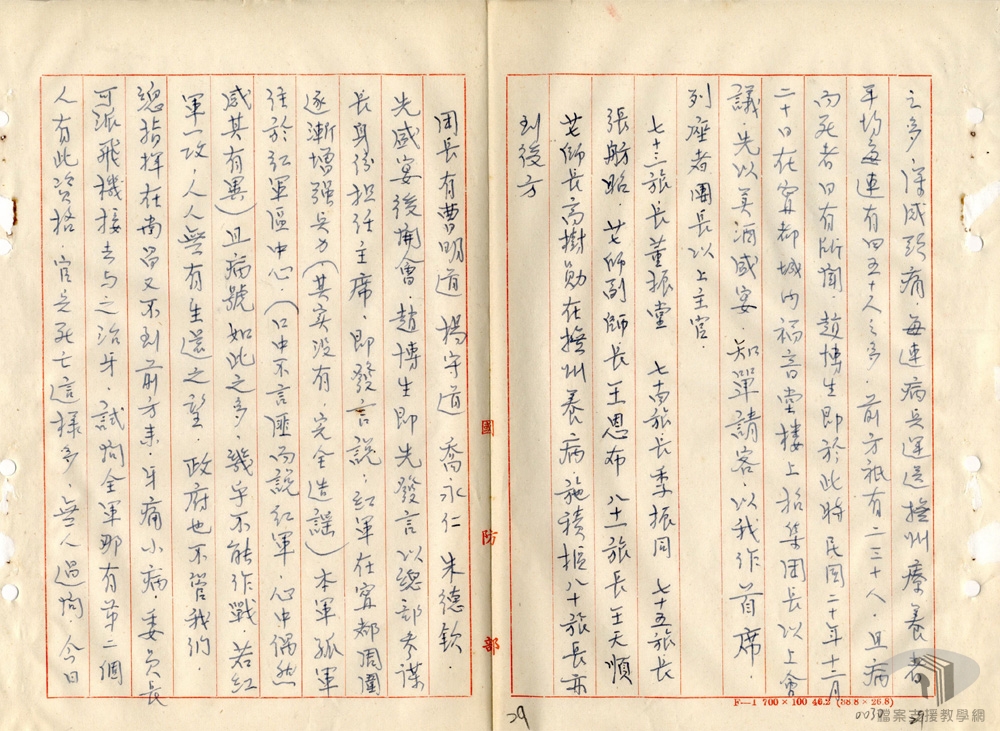 之多,渾成頭痛每連病兵運送撫州療養者
平均每連有四五十人之多.前方祇有二三十人.且病
而死者日有所聞.趙博生即於此時 民國二十年十二月
二十日在寧都城內福音堂樓上招集團長以上會
議 先以美酒咸宴.知單請客.以我作首席.
列座者團長以上主官.
七十三旅長董振堂 七十四旅長季振同 七十五旅長
張舫昭.廿七師副師長王思布 八十一旅長王天順
廿七師長高樹勛在撫州養病.施積樞八十旅長亦
到後方
團長有曹明道 楊守道 喬永仁 朱德欽.
先咸宴後開會.趙博生即先發言以總部參謀
長身份担任主席.即發言說.紅軍在寧都周圍
逐漸增強兵力(其实没有.完全造謠)本軍孤軍
住於紅軍區中心.(口中不言匪而說紅軍.心中偶然
感其有異)且病號如此之多.幾乎不能作戰.若紅
軍一攻.人人無有生還之望.政府也不管我們.
總指揮在南昌又不到前方來.牙痛小病.委員長
可派飛機接去与之治牙.試問全軍那有第二個
人有此資格.官兵死亡這様多.無人過問.今日
國防部
F—1 700×100 46.2 (38.8×26.8)
29
0030
29
檔案支援教學網